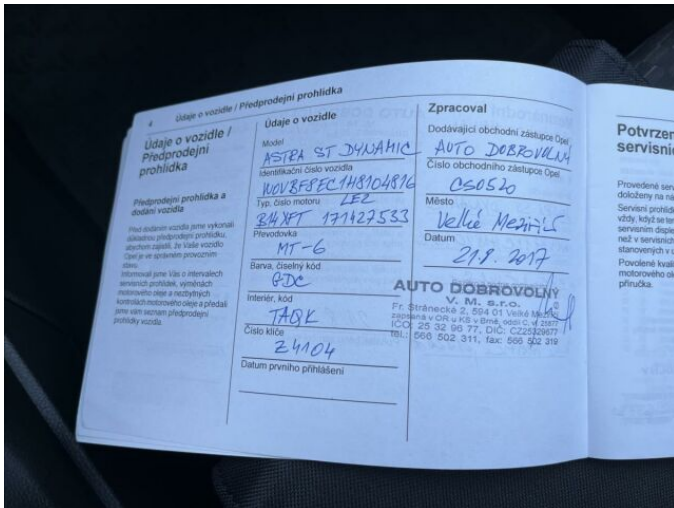 4 Údaje o vozidle / Předprodejní prohlídka
Údaje o vozidle /
Předprodejní
prohlídka
Předprodejní prohlídka a
dodání vozidla
Před dodáním vozidla jsme vykonali
důkladnou předprodejní prohlídku,
abychom zajistili, že Vaše vozidlo
Opel je ve správném provozním
stavu.
Informovali jsme Vás o intervalech
servisních prohlídek, výměnách
motorového oleje a nezbytných
kontrolách motorového oleje a předali
jsme vám seznam předprodejní
prohlídky vozidla.
Údaje o vozidle
Model
ASTRA ST DYNAMIC
Identifikační číslo vozidla
W0VBF8EC1H8104816
Typ, číslo motoru LE2
B14XFT 171427533
Převodovka
MT-6
Barva, číselný kód
GDC
Interiér, kód
TAQK
Číslo klíče
Z4104
Datum prvního přihlášení
Zpracoval
Dodávající obchodní zástupce Opel
AUTO DOBROVOLNÝ
Číslo obchodního zástupce Opel
CS0520
Město
Velké Meziříčí
Datum
21.8. 2017
AUTO DOBROVOLNÝ
V. M. s.r.o.
Fr. Stránecká 2, 594 01 Velké Meziříčí
zapsaná v OR u KS v Brně, oddíl C, vl. 25877
IČO: 25 32 96 77, DIČ: CZ25329677
tel.: 566 502 311, fax: 566 502 319
Potvrzen
servisní
Provedené serv
doloženy na ná
Servisní prohlíd
vždy, když se ten
servisním disple
než v servisních
stanovených v
Povolené kvali
motorového ole
příručka.